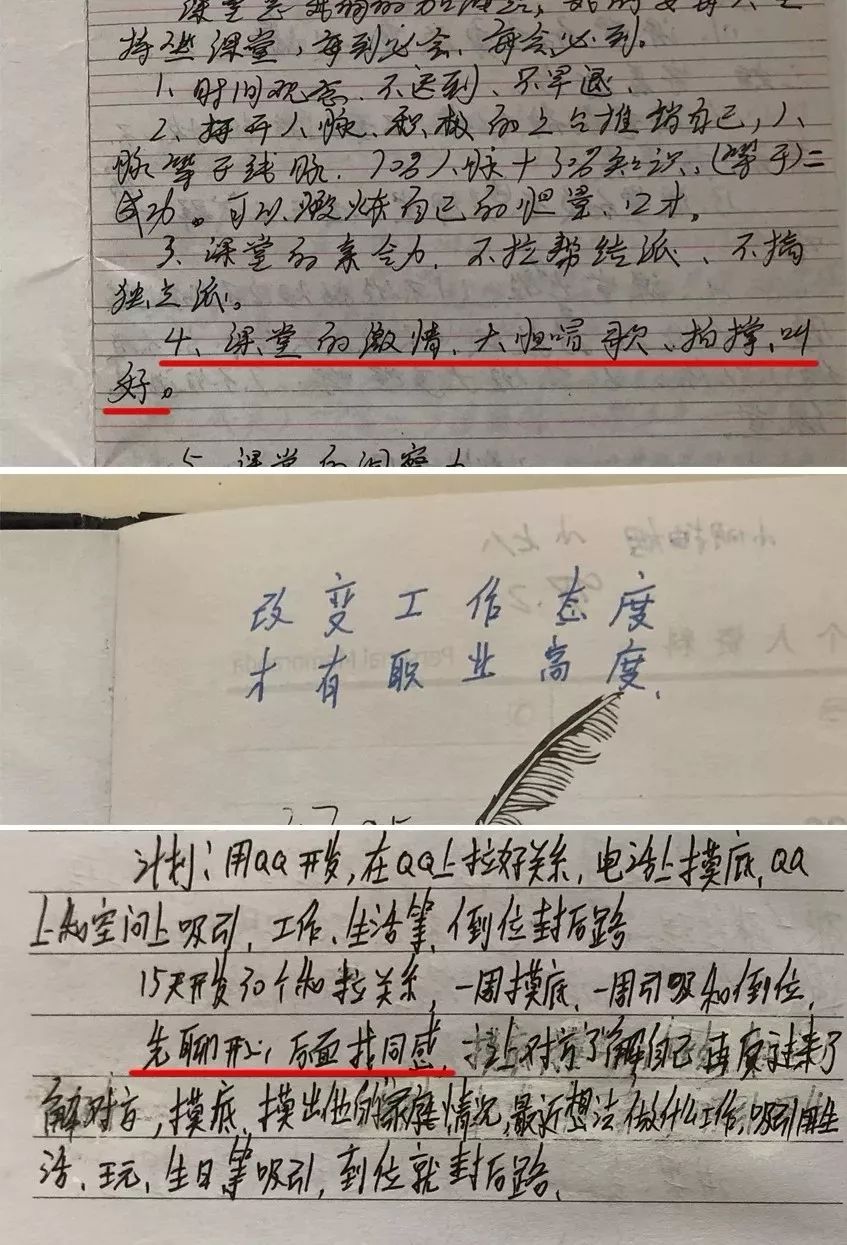 持进课堂，每到必会、每会必到。
1、时间观念、不迟到、不早退、
2、打开人脉、积极的上台推销自己，人
脉等于钱脉、70%人脉+30%知识、(等于)=
成功。可以锻炼自己的胆量、口才。
3、课堂的亲合力、不拉帮结派、不搞
独立派。
4、课堂的激情、大胆唱歌、拍撑、叫
好。
5、课堂的洞察力
改变工作态度
才有职业高度、
个人资料
计划：用QQ开发，在QQ上拉好关系，电话上摸底，QQ
上和空间上吸引，工作、生活等，倒位封后路
15天开发30个和拉关系，一周摸底、一周引吸和倒位，
先聊开心，后面找同感、让对方了解自己再度过来了
解对方，摸底、摸出他的家庭情况，最近想法，做什么工作，吸引用生
活、玩、生日等吸引，到位就封后路、